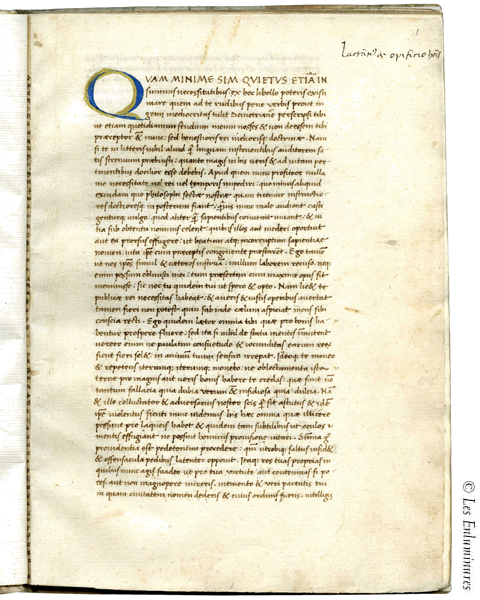 1
Lactan^t de opificio ho^is
QVAM MINIME SIM QVIETVS ETIÃ IN
summis necessitatibus: ex hoc libello poteris existi
mare quem ad te rudibus pene verbis prout in
genii mediocritas tulit Demetriane perscripsi tibi
ut etiam quotidianum studium meum nosses & non deessem tibi
præceptor & nunc: sed honestioris rei meliorisq; doctrinæ. Nam
si te in litteris nihil aliud q̃ linguam instruentibus auditorem sa
tis strenuum præbuisti: quanto magis in his ueris & ad uitam per
tinentibus docilior esse debebis. Apud quem nunc profiteor nulla
me necessitate uel rei uel temporis impediri: quo minus aliquid
excudam quo philosophi sectæ nostræ quam tuemur instructio
res doctioresq; in posterum fiant: q̃uis nunc male audiant casti
genturq; uulgo: quod aliter q̃ sapientibus conuenit uiuant: & ui
tia sub obtentu nominis celent: quibus illos aut mederi oportuit
aut ea prorsus effugere: ut beatum atq; incorruptum sapientiæ
nomen: uita ipsa cum præceptis congruente præstarent. Ego tamen
ut nos ipsos simul & cæteros instruã: nullum laborem recuso. neq;
enim possum obliuisci mei: tum præsertim cum maxime opus sit
meminisse: sic nec tu quidem tui ut spero & opto. Nam licet te
publicæ rei necessitas habeat: & a ueris & iustis operibus auertat
tamen fieri non potest quin sub inde cælum aspiciat mens sibi
conscia recti. Ego quidem lætor omnia tibi quæ pro bonis ha
bentur prospere fluere: sed ita si nihil de statu mentis imutent
uereor enim ne paulatim consuetudo & iocunditas earum rerum
sicut fieri solet in animum tuum sensim irrepat. Ideoq; te moneo
& repetens iterumq; iterumq; monebo: ne oblectamenta ista
terræ pro magnis aut ueris bonis habere te credas: quæ sunt nõ
tantum fallacia quia dubia uerum & insidiosa quia dulcia. Nã
& ille colluctator & aduersarius noster scis q̃ sit astutus & idẽ
ipse violentus sicuti nunc uidemus. Is hæc omnia quæ illicere
possunt pro laqueis habet & quidem tam subtilibus ut oculos
mentis effugiant: ne possint hominis prouisione uitari. Summa g̃
prudentia est pedetentim procedere: qm̃ utrobiq; saltus insidet
& offensacula pedibus latenter opponit. Itaq; res tuas prosperas in
quibus nunc agis suadeo ut pro tua uirtute aut contemnas si po
tes: aut non magnopere mireris. memento & ueri parentis tui
in quam ciuitatem nomen dederis & cuius ordinis fueris. intelligis
© Les Enluminures